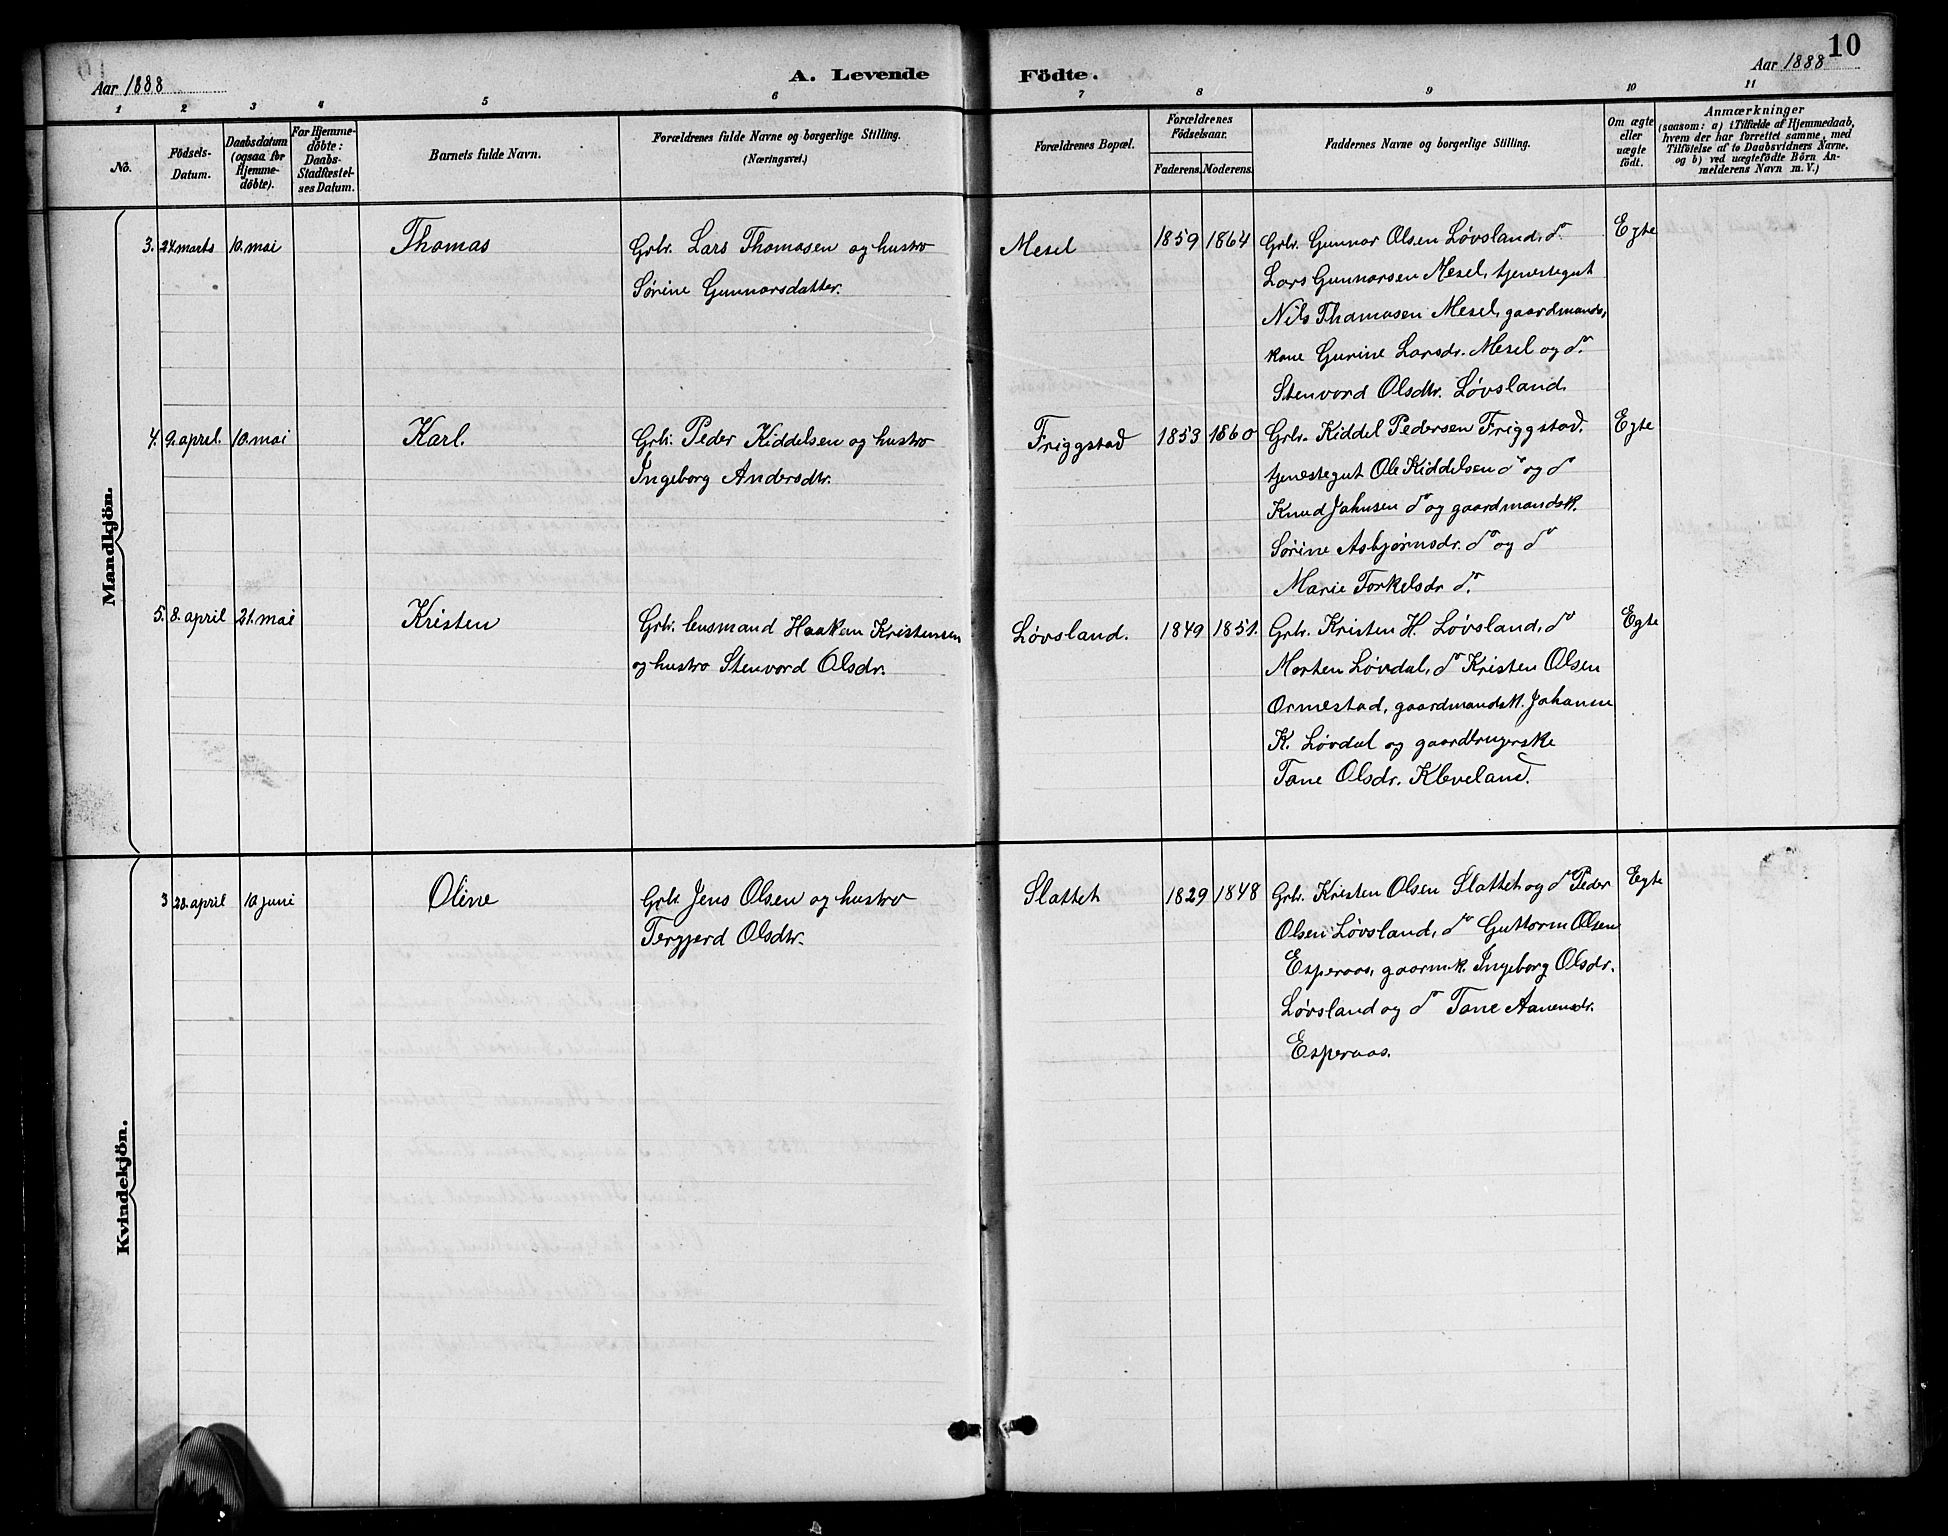 10
Aar 1888
A. Levende
Födte.
Aar 1888
1 2 3 4 5 6 7 8 9 10 11
No.
Födsels-Datum.
Daabsdatum (ogsaa for Hjemmedöbte).
For Hjemmedöbte: Daabs-Stadfæstelses Datum.
Barnets fulde Navn.
Forældrenes fulde Navne og borgerlige Stilling.
(Næringsvei.)
Forældrenes Bopæl.
Forældrenes Födselsaar.
Faderens. Moderens.
Faddernes Navne og borgerlige Stilling.
Om ægte eller uægte födt.
Anmærkninger
(saasom: a) i Tilfælde af Hjemmedaab,
hvem der har forrettet samme, med
Tilföielse af to Daabsvidners Navne.
og b) ved uægtefödte Börn An-
melderens Navn m. V.)
Mandkjön.
3. 24. marts 10. mai Thomas
Grbr. Lars Thomasen og hustro
Sørine Gunnarsdatter.
Mesel 1859 1864
Grbr. Gunnar Olsen Løvsland, do
Lars Gunnarsen Mesel, tjenestegut
Nils Thomasen Mesel, gaardmands,
kone Gurine Larsdr. Mesel og do
Stenvord Olsdtr. Løvsland.
Egte
4. 9. april. 10. mai Karl.
Grbr. Peder Kiddelsen og hustro
Ingeborg Andersdtr.
Friggstad 1853 1860
Grbr. Kiddel Pedersen Friggstad.
tjenestegut Ole Kiddelsen do og do
Knud Jahnsen do og gaardmandsk.
Sørine Asbjørnsdr. do og do
Marie Torkelsdr do.
Egte
5. 8. april 21. mai Kristen
Grbr. husmand Haaken Kristensen
og hustro Stenvord Olsdr.
Løvsland. 1849 1851.
Grbr. Kristen H. Løvsland, do
Morten Løvdal, do Kristen Olsen
Ormestad, gaardmandsk. Johanne
K. Løvdal og gaardbrugerske
Tone Olsdr. Kleveland.
Egte
Kvindekjön.
3 28. april 10. juni Oline
Grbr. Jens Olsen og hustro
Tergjerd Olsdtr.
Slattet 1829 1848
Grbr. Kristen Olsen Slattet og do Peder
Olsen Løvsland, do Guttorm Olsen
Esperaas, gaarmk. Ingeborg Olsdr.
Løvsland og do Tone Aanensdr.
Esperaas.
Egte